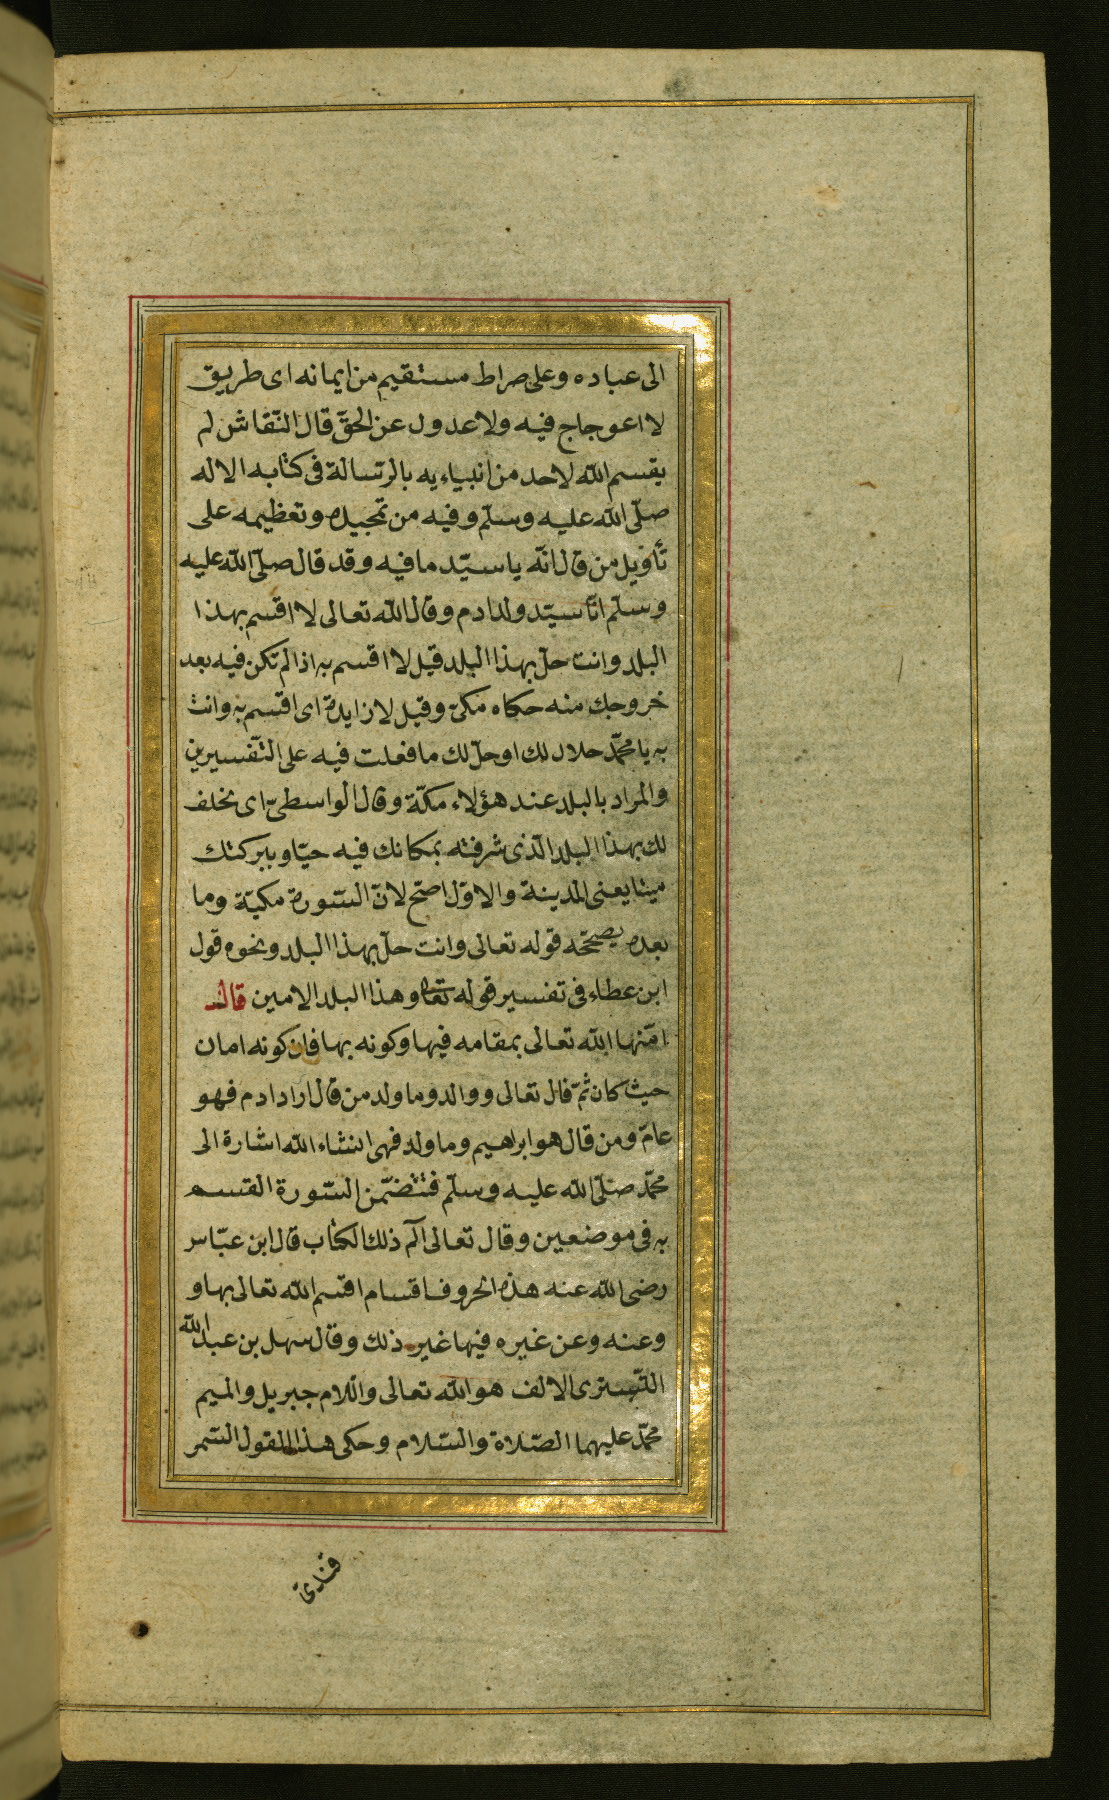 الى عباده وعلى صراط مستقيم من ايمانه اى طريق
لا اعوجاج فيه ولا عدول عن الحقّ قال النّقاش لم
يقسم الله لاحد من انبياءيه بالرّسالة فى كتابه الا له
صلّى الله عليه وسلّم وفيه من تمجيده وتعظيمه على
تأويل من قال انّه يا سيّد ما فيه وقد قال صلّى الله عليه
وسلّم انا سيّد ولد ادم وقال الله تعالى لا اقسم بهذا
البلد وانت حلّ بهذا البلد قيل لا اقسم به اذا لم تكن فيه بعد
خروجك منه حكاه مكىّ وقيل لا زايدة اى اقسم به وانت
به يا محمّد حلال لك او حلّ لك ما فعلت فيه على التّفسيرين
والمراد بالبلد عند هؤلاء مكّة وقال الواسطىّ اى نحلف
لك بهذا البلد الّذى شرفته بمكانك فيه حيّا وببركتك
ميتا يعنى المدينة والاوّل اصحّ لانّ السّورة مكيّة وما
بعده يصحّحه قوله تعالى وانت حلّ بهذا البلد ونحوه قول
ابن عطاء فى تفسير قوله تعالى وهذا البلد الامين قال
امّنها الله تعالى بمقامه فيها وكونه بها فان كونه امان
حيث كان ثمّ قال تعالى ووالد وما ولد من قال اراد ادم فهو
عامّ ومن قال هو ابراهيم وما ولد فهى انشاء الله اشارة الى
محمّد صلّى الله عليه وسلّم فتتضمّن السّورة القسم
به فى موضعين وقال تعالى الٓم ذلك الكتاب قال ابن عبّاس
رضى الله عنه هذه الحروف اقسام اقسم الله تعالى بها و
وعنه وعن غيره فيها غير ذلك وقال سهل بن عبد الله
التّسترى الالف هو الله تعالى واللام جبريل والميم
محمّد عليهما الصّلاة والسّلام وحكى هذا القول السّمر
قندىّ